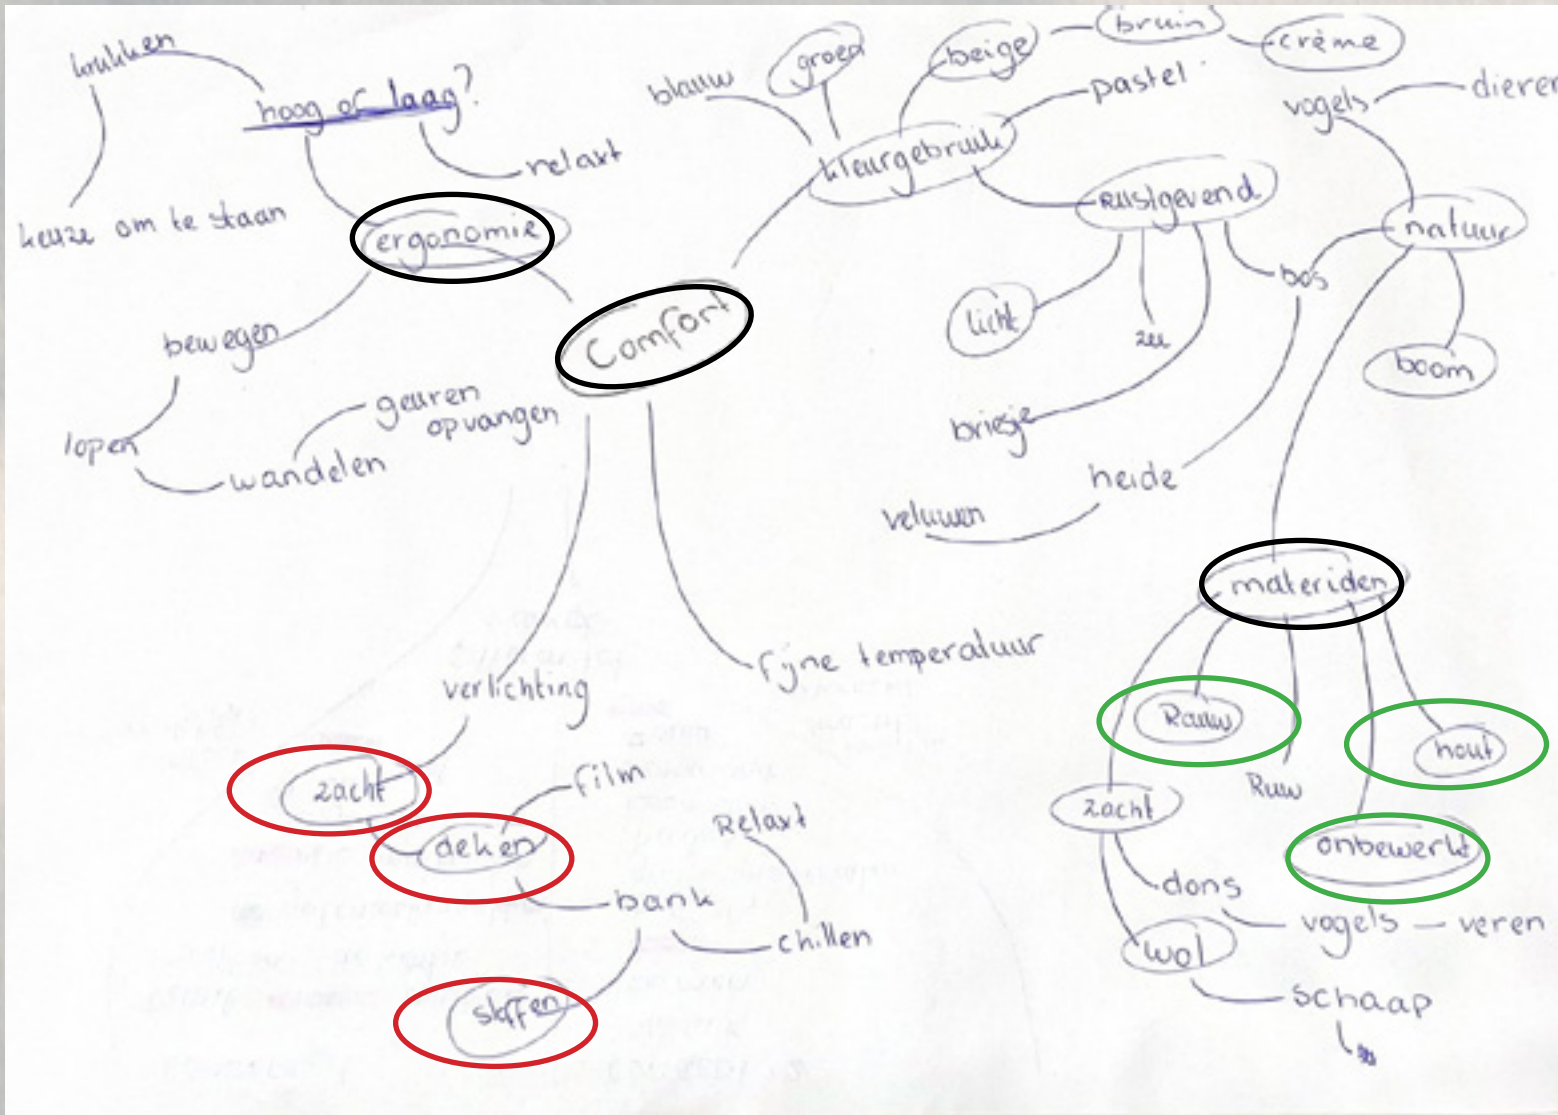 krukken
hoog of laag?
relaxt
keuze om te staan
ergonomie
bewegen
lopen
wandelen
geuren
opvangen
Comfort
blauw
groen
beige
bruin
crème
pastel
kleurgebruik
Rustgevend
licht
zee
briesje
bos
heide
veluwen
vogels
dieren
natuur
boom
materialen
Rauw
Ruw
hout
onbewerkt
zacht
dons
vogels — veren
wol
schaap
fijne temperatuur
verlichting
zacht
deken
film
bank
Relaxt
chillen
stoffen